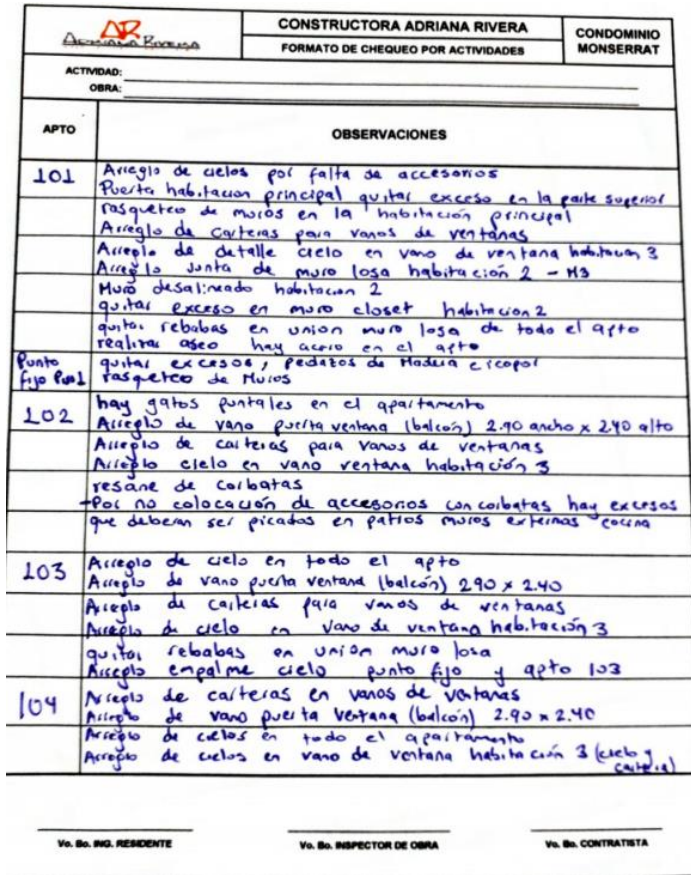 AR
ADRIANA RIVERA
CONSTRUCTORA ADRIANA RIVERA
FORMATO DE CHEQUEO POR ACTIVIDADES
CONDOMINIO
MONSERRAT
ACTIVIDAD:
OBRA:
APTO
OBSERVACIONES
101 Arreglo de cielos por falta de accesorios
Puerta habitacion principal quitar exceso en la parte superior
rasqueteo de muros en la habitación principal
Arreglo de carteras para vanos de ventanas
Arreglo de detalle cielo en vano de ventana habitacion 3
Arreglo Junta de muro losa habitación 2 - H3
Muro desalineado habitacion 2
quitar exceso en muro closet habitacion 2
quitar rebabas en union muro losa de todo el apto
realizar aseo hay acero en el apto
Punto fijo quitar excesos, pedazos de Madera e icopor
rasqueteo de Muros
102 hay gatos puntales en el apartamento
Arreglo de vano puerta ventana (balcón) 2.90 ancho x 2.40 alto
Arreglo de carteras para vanos de ventanas
Arreglo cielo en vano ventana habitación 3
resane de corbatas
-Por no colocación de accesorios con corbatas hay excesos
que deberan ser picados en patios muros externas cocina
103 Arreglo de cielo en todo el apto
Arreglo de vano puerta ventana (balcón) 290 x 2.40
Arreglo de carteras para vanos de ventanas
Arreglo de cielo en vano de ventana habitación 3
quitar rebabas en union muro losa
Arreglo empalme cielo punto fijo y apto 103
104 Arreglo de carteras en vanos de ventanas
Arreglo de vano puerta ventana (balcón) 2.90 x 2.40
Arreglo de cielos en todo el apartamento
Arreglo de cielos en vano de ventana habitación 3 (cielo y
cartera)
Vo. Bo. ING. RESIDENTE
Vo. Bo. INSPECTOR DE OBRA
Vo. Bo. CONTRATISTA